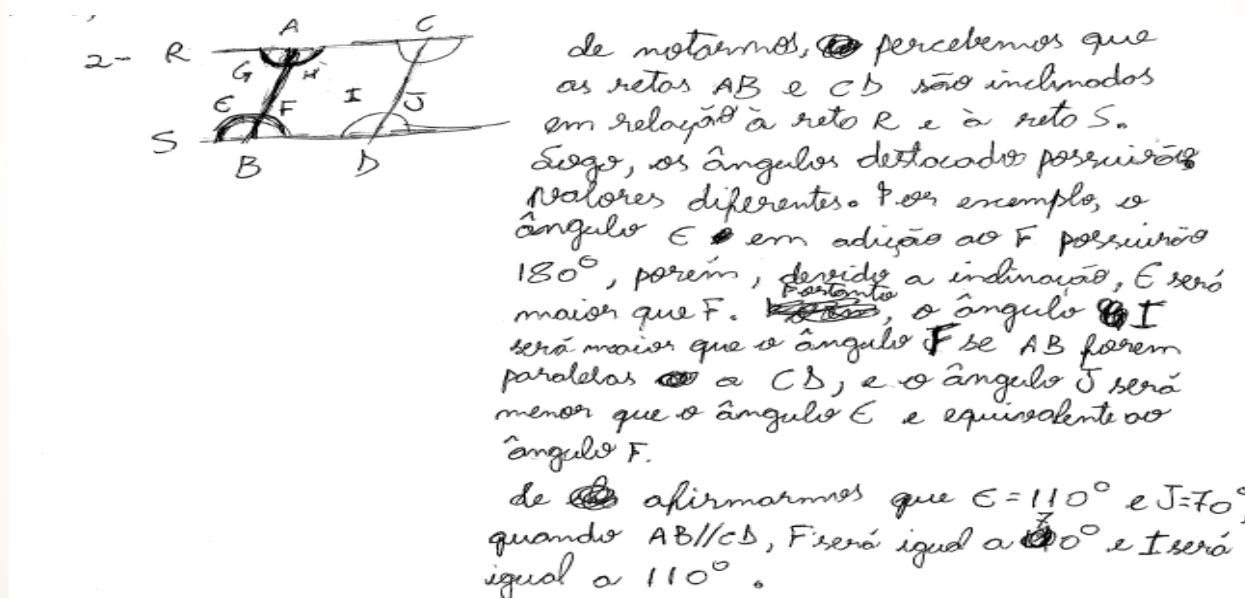 2- R A C
G H I J
E F
S B D
de notarmos, percebemos que
as retas AB e CD são inclinados
em relação à reto R e à reto S.
Logo, os ângulos destacado possuirão
valores diferentes. Por exemplo, o
ângulo E em adição ao F possuirão
180°, porém, devido a inclinação, E será
maior que F. Portanto, o ângulo I
será maior que o ângulo F se AB forem
paralelas a CD, e o ângulo J será
menor que o ângulo E e equivalente ao
ângulo F.
de afirmarmos que E=110° e J=70°,
quando AB//CD, F será igual a 70° e I será
igual a 110°.